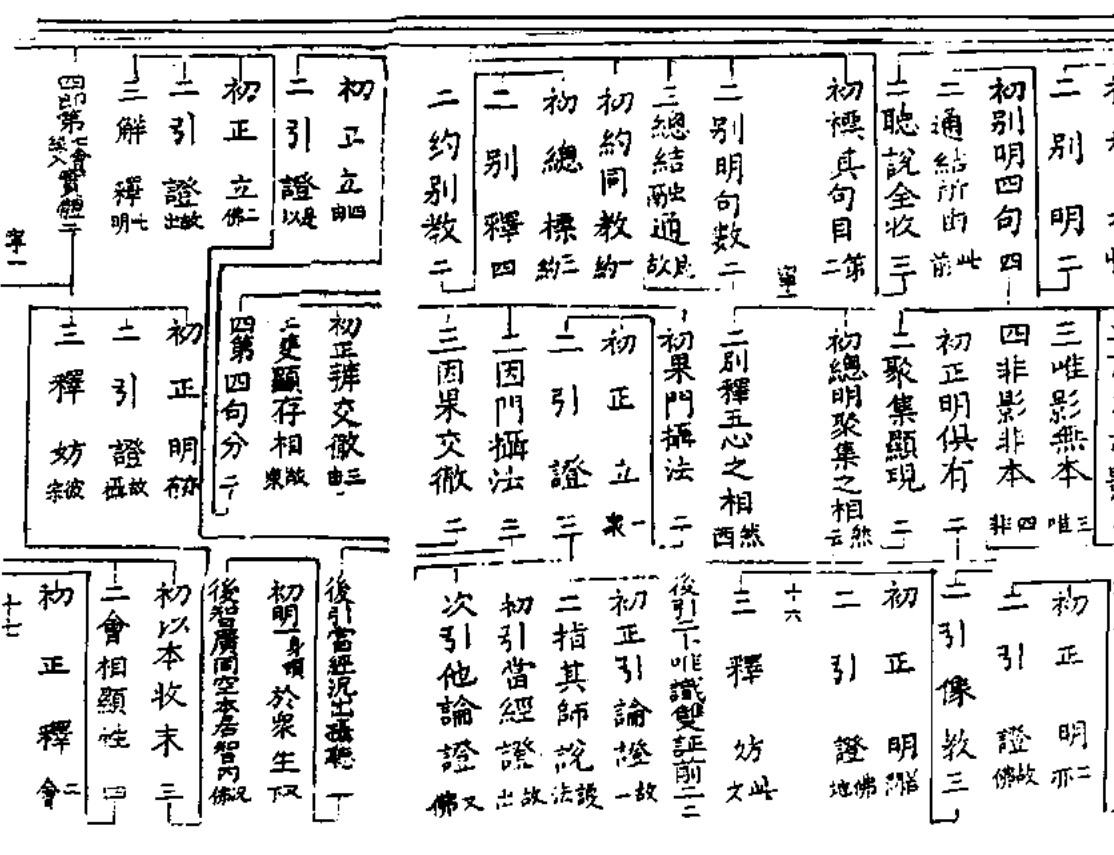 二別明二
初別明四句四
二通結所由此前
二聽說全收三
初標真句目第二
二別明句數二
三總結融通故
初約同教約一
初總標約三
二別釋四
二約別教二
初正立由四
二引證以是
初正立佛二
二引證出故
三解釋明七
四即第七會
寧一
三唯影無本唯三
四非影非本非四
初正明俱有二
二聚集顯現二
初總明聚集之相然云
二別釋五心之相然西
初果門攝法二
初正立衆一
二引證三
二因門攝法二
三因果交徹二
初正辨交徹由三
二雙顯存相故東
四第四句分二
初正明
二引證故
三釋妨彼宗
初正明亦二
二引證佛故
二引像教三
初正明
二引證佛地
十六
三釋妨此文
後引下唯識雙証前二二
初正引論證故一
二指其師說法護
初引當經證故出
次引他論證又佛
後引當經況出攝聽
初明一身頓於衆生下又
後智廣同空本居智內佛況
初以本收末三
二會相顯性四
初正釋會二
十七